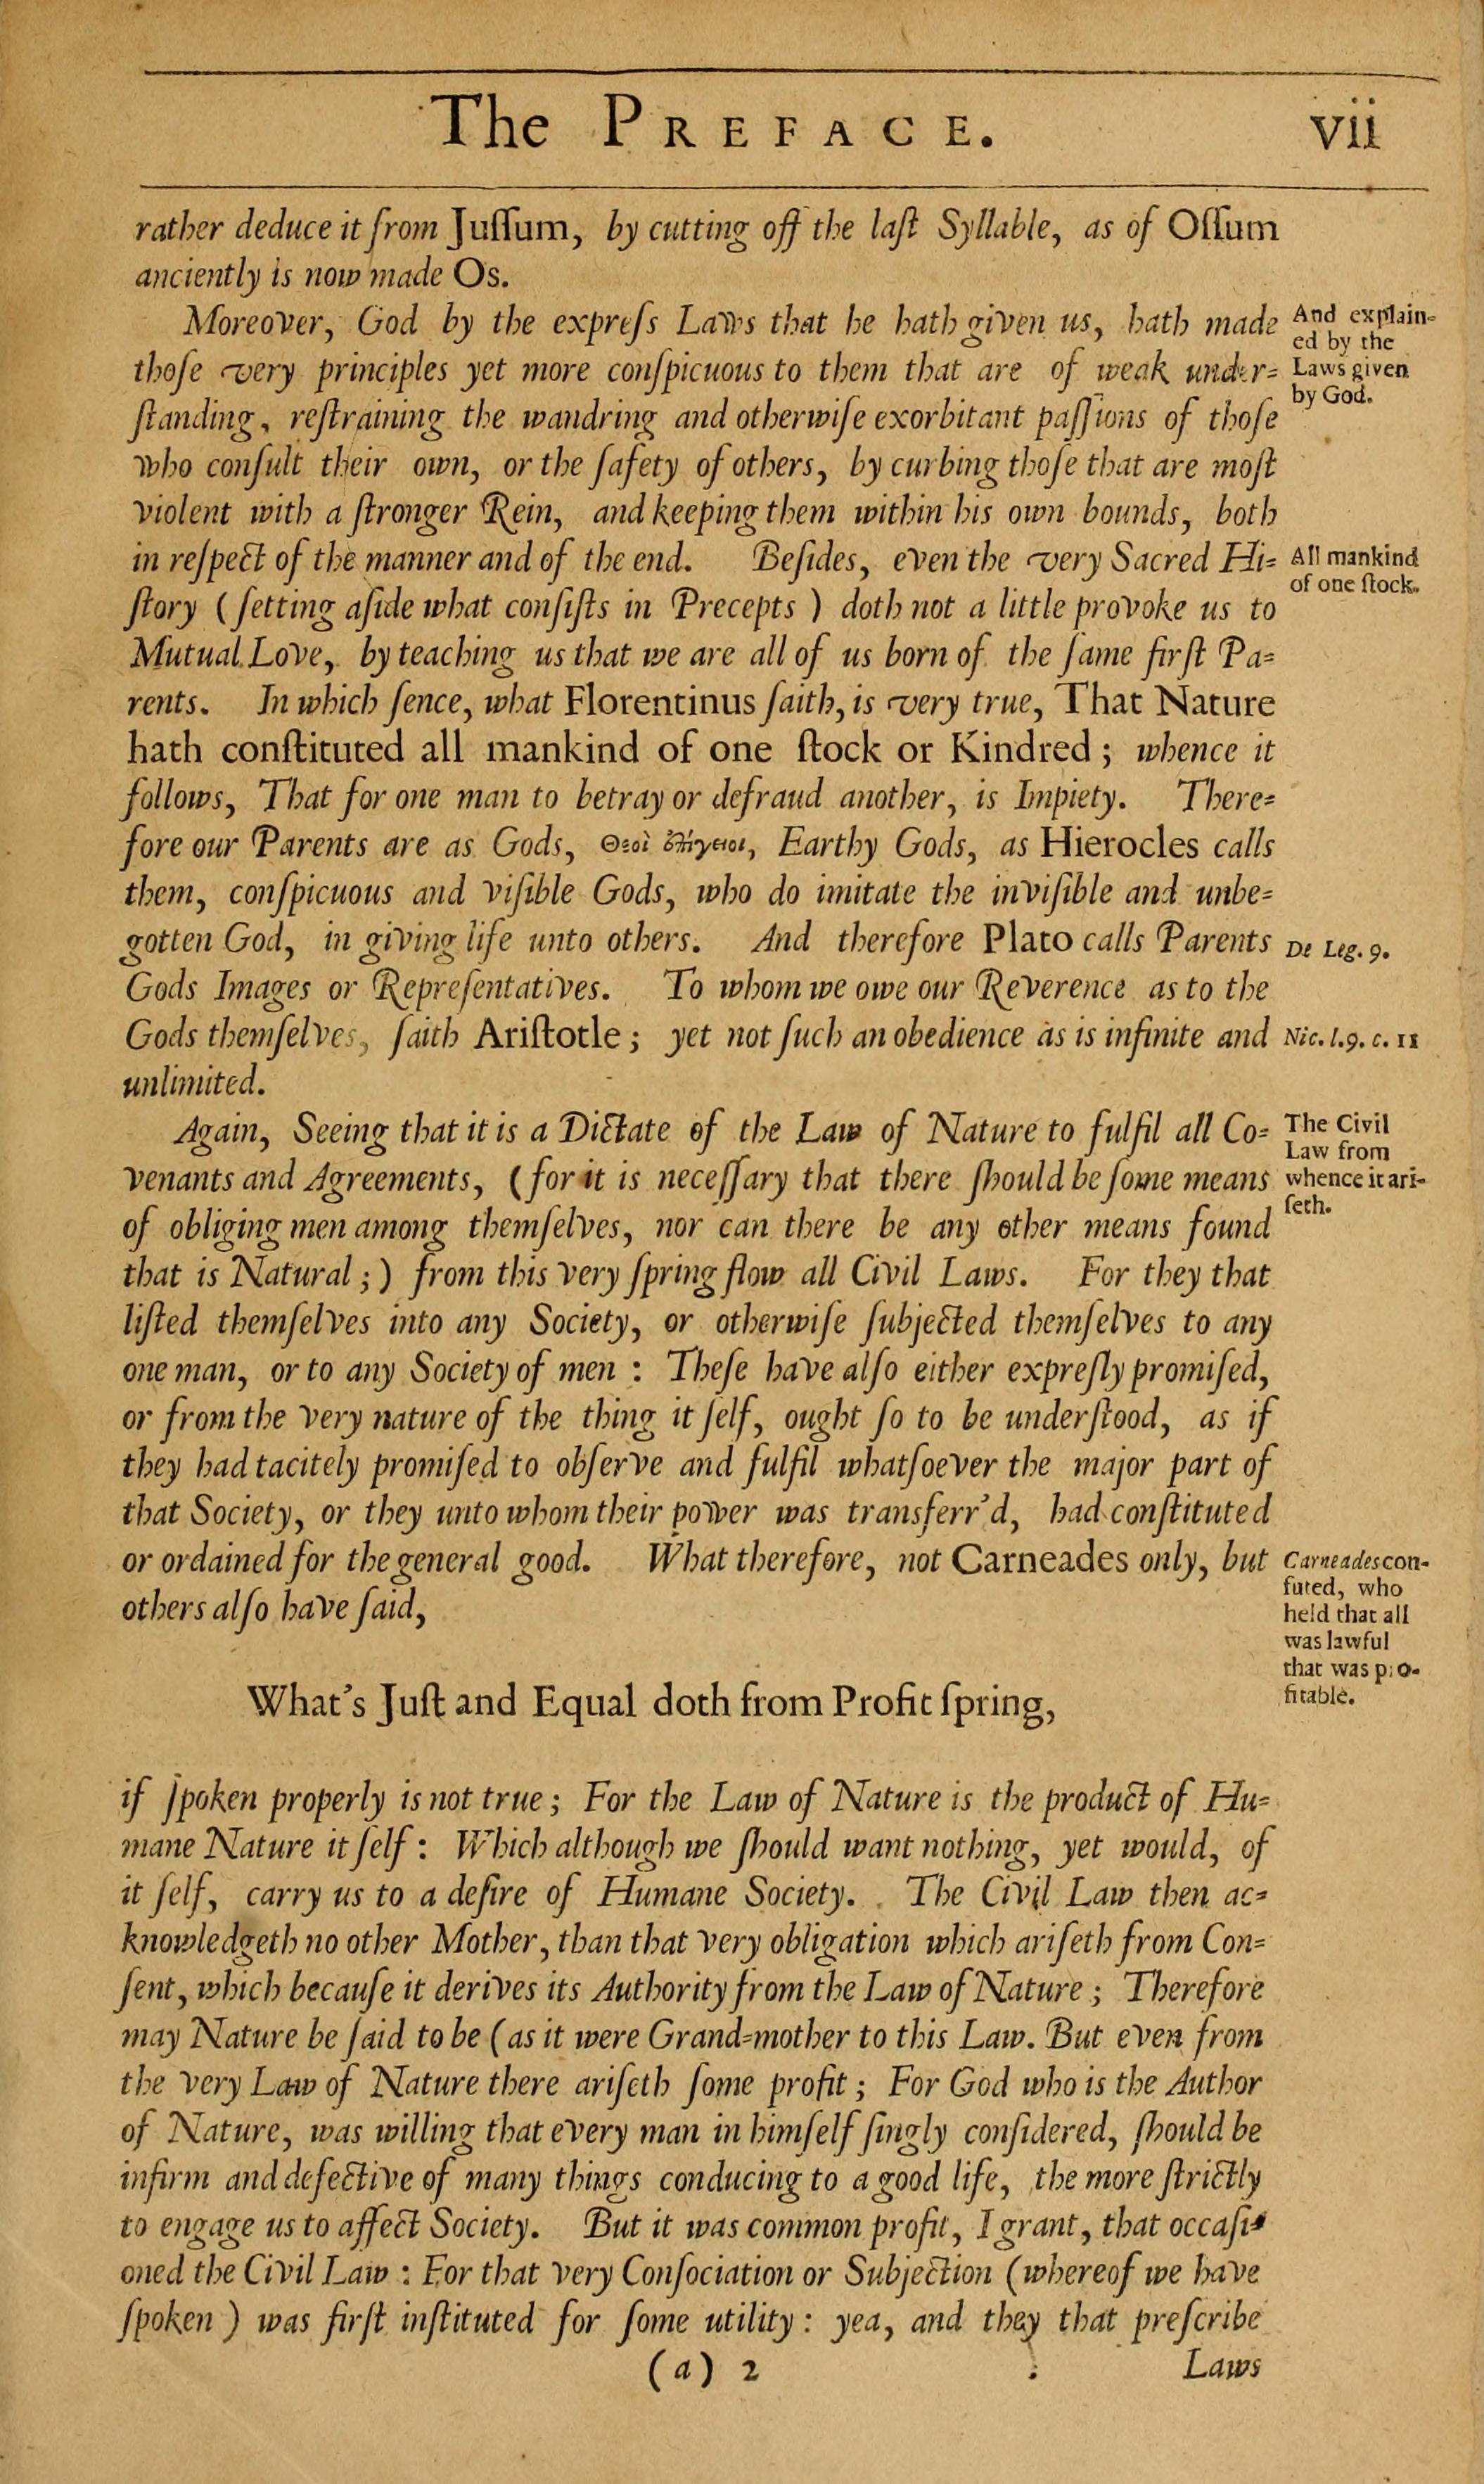 The PREFACE. vii
rather deduce it from Juſſum, by cutting off the laſt Syllable, as of Oſſum
anciently is now made Os.
Moreover, God by the expreſs Laws that he hath given us, hath made
thoſe very principles yet more conſpicuous to them that are of weak under=
ſtanding, reſtraining the wandring and otherwiſe exorbitant paſſions of thoſe
who conſult their own, or the ſafety of others, by curbing thoſe that are moſt
violent with a ſtronger Rein, and keeping them within his own bounds, both
in reſpect of the manner and of the end. Beſides, even the very Sacred Hi=
ſtory (ſetting aſide what conſiſts in Precepts) doth not a little provoke us to
Mutual Love, by teaching us that we are all of us born of the ſame firſt Pa=
rents. In which ſence, what Florentinus ſaith, is very true, That Nature
hath conſtituted all mankind of one ſtock or Kindred; whence it
follows, That for one man to betray or defraud another, is Impiety. There=
fore our Parents are as Gods, Θεοὶ ἐπίγειοι, Earthy Gods, as Hierocles calls
them, conſpicuous and viſible Gods, who do imitate the inviſible and unbe=
gotten God, in giving life unto others. And therefore Plato calls Parents
Gods Images or Repreſentatives. To whom we owe our Reverence as to the
Gods themſelves, ſaith Ariſtotle; yet not ſuch an obedience as is infinite and
unlimited.
Again, Seeing that it is a Dictate of the Law of Nature to fulfil all Co=
venants and Agreements, (for it is neceſſary that there ſhould be ſome means
of obliging men among themſelves, nor can there be any other means found
that is Natural;) from this very ſpring flow all Civil Laws. For they that
liſted themſelves into any Society, or otherwiſe ſubjected themſelves to any
one man, or to any Society of men: Theſe have alſo either expreſly promiſed,
or from the very nature of the thing it ſelf, ought ſo to be underſtood, as if
they had tacitely promiſed to obſerve and fulfil whatſoever the major part of
that Society, or they unto whom their power was transferr'd, had conſtituted
or ordained for the general good. What therefore, not Carneades only, but
others alſo have ſaid,
What's Juſt and Equal doth from Profit ſpring,
if ſpoken properly is not true; For the Law of Nature is the product of Hu=
mane Nature it ſelf: Which although we ſhould want nothing, yet would, of
it ſelf, carry us to a deſire of Humane Society. The Civil Law then ac=
knowledgeth no other Mother, than that very obligation which ariſeth from Con=
ſent, which becauſe it derives its Authority from the Law of Nature; Therefore
may Nature be ſaid to be (as it were Grand=mother to this Law. But even from
the very Law of Nature there ariſeth ſome profit; For God who is the Author
of Nature, was willing that every man in himſelf ſingly conſidered, ſhould be
infirm and defective of many things conducing to a good life, the more ſtrictly
to engage us to affect Society. But it was common profit, I grant, that occaſi=
oned the Civil Law: For that very Conſociation or Subjection (whereof we have
ſpoken) was firſt inſtituted for ſome utility: yea, and they that preſcribe
(a) 2 Laws
And explain=
ed by the
Laws given
by God.
All mankind
of one ſtock.
De Leg. 9.
Nic. l.9. c. 11
The Civil
Law from
whence it ari-
ſeth.
Carneades con-
futed, who
held that all
was lawful
that was pro-
fitable.